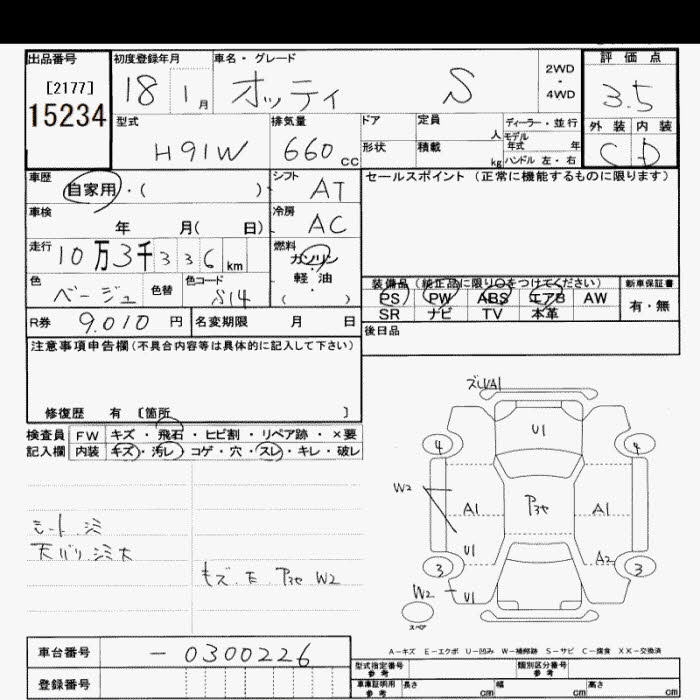 出品番号 初度登録年月 車名・グレード 評価点
[2177] 18 1月 オッティ S 2WD・4WD 3.5
15234
型式 排気量 ドア 定員 人 ディーラー・並行 外装 内装
H91W 660cc 形状 積載 kg モデル年式 年 ハンドル 左・右 C D
車歴 自家用・( ) シフト AT セールスポイント(正常に機能するものに限ります)
車検 年 月( 日) 冷房 AC
走行 10万3千336km 燃料 ガソリン
色 ベージュ 色替 色コード S14 軽油 ( ・ )
装備品(純正品に限り○をつけてください) 新車保証書
PS PW ABS エアB AW 有・無
SR ナビ TV 本革
R券 9.010円 名変期限 月 日 後日品
注意事項申告欄(不具合内容等は具体的に記入して下さい)
修復歴 有 〔箇所 〕
検査員 FW キズ・飛石・ヒビ割・リペア跡・×要
記入欄 内装 キズ・汚レ・コゲ・穴・スレ・キレ・破レ
シート
天バリ
キズ E P3セ W2
ズレA1
U1
4 4
W2 A1 P3セ A1
U1 A2
3 3
W2 U1
スペア
A-キズ E-エクボ U-凹み W-補修跡 S-サビ C-腐食 XX-交換済
車台番号 -0300226 型式指定番号 参考 類別区分番号 参考
登録番号 車庫証明用 参考 長さ cm 幅 cm 高さ cm